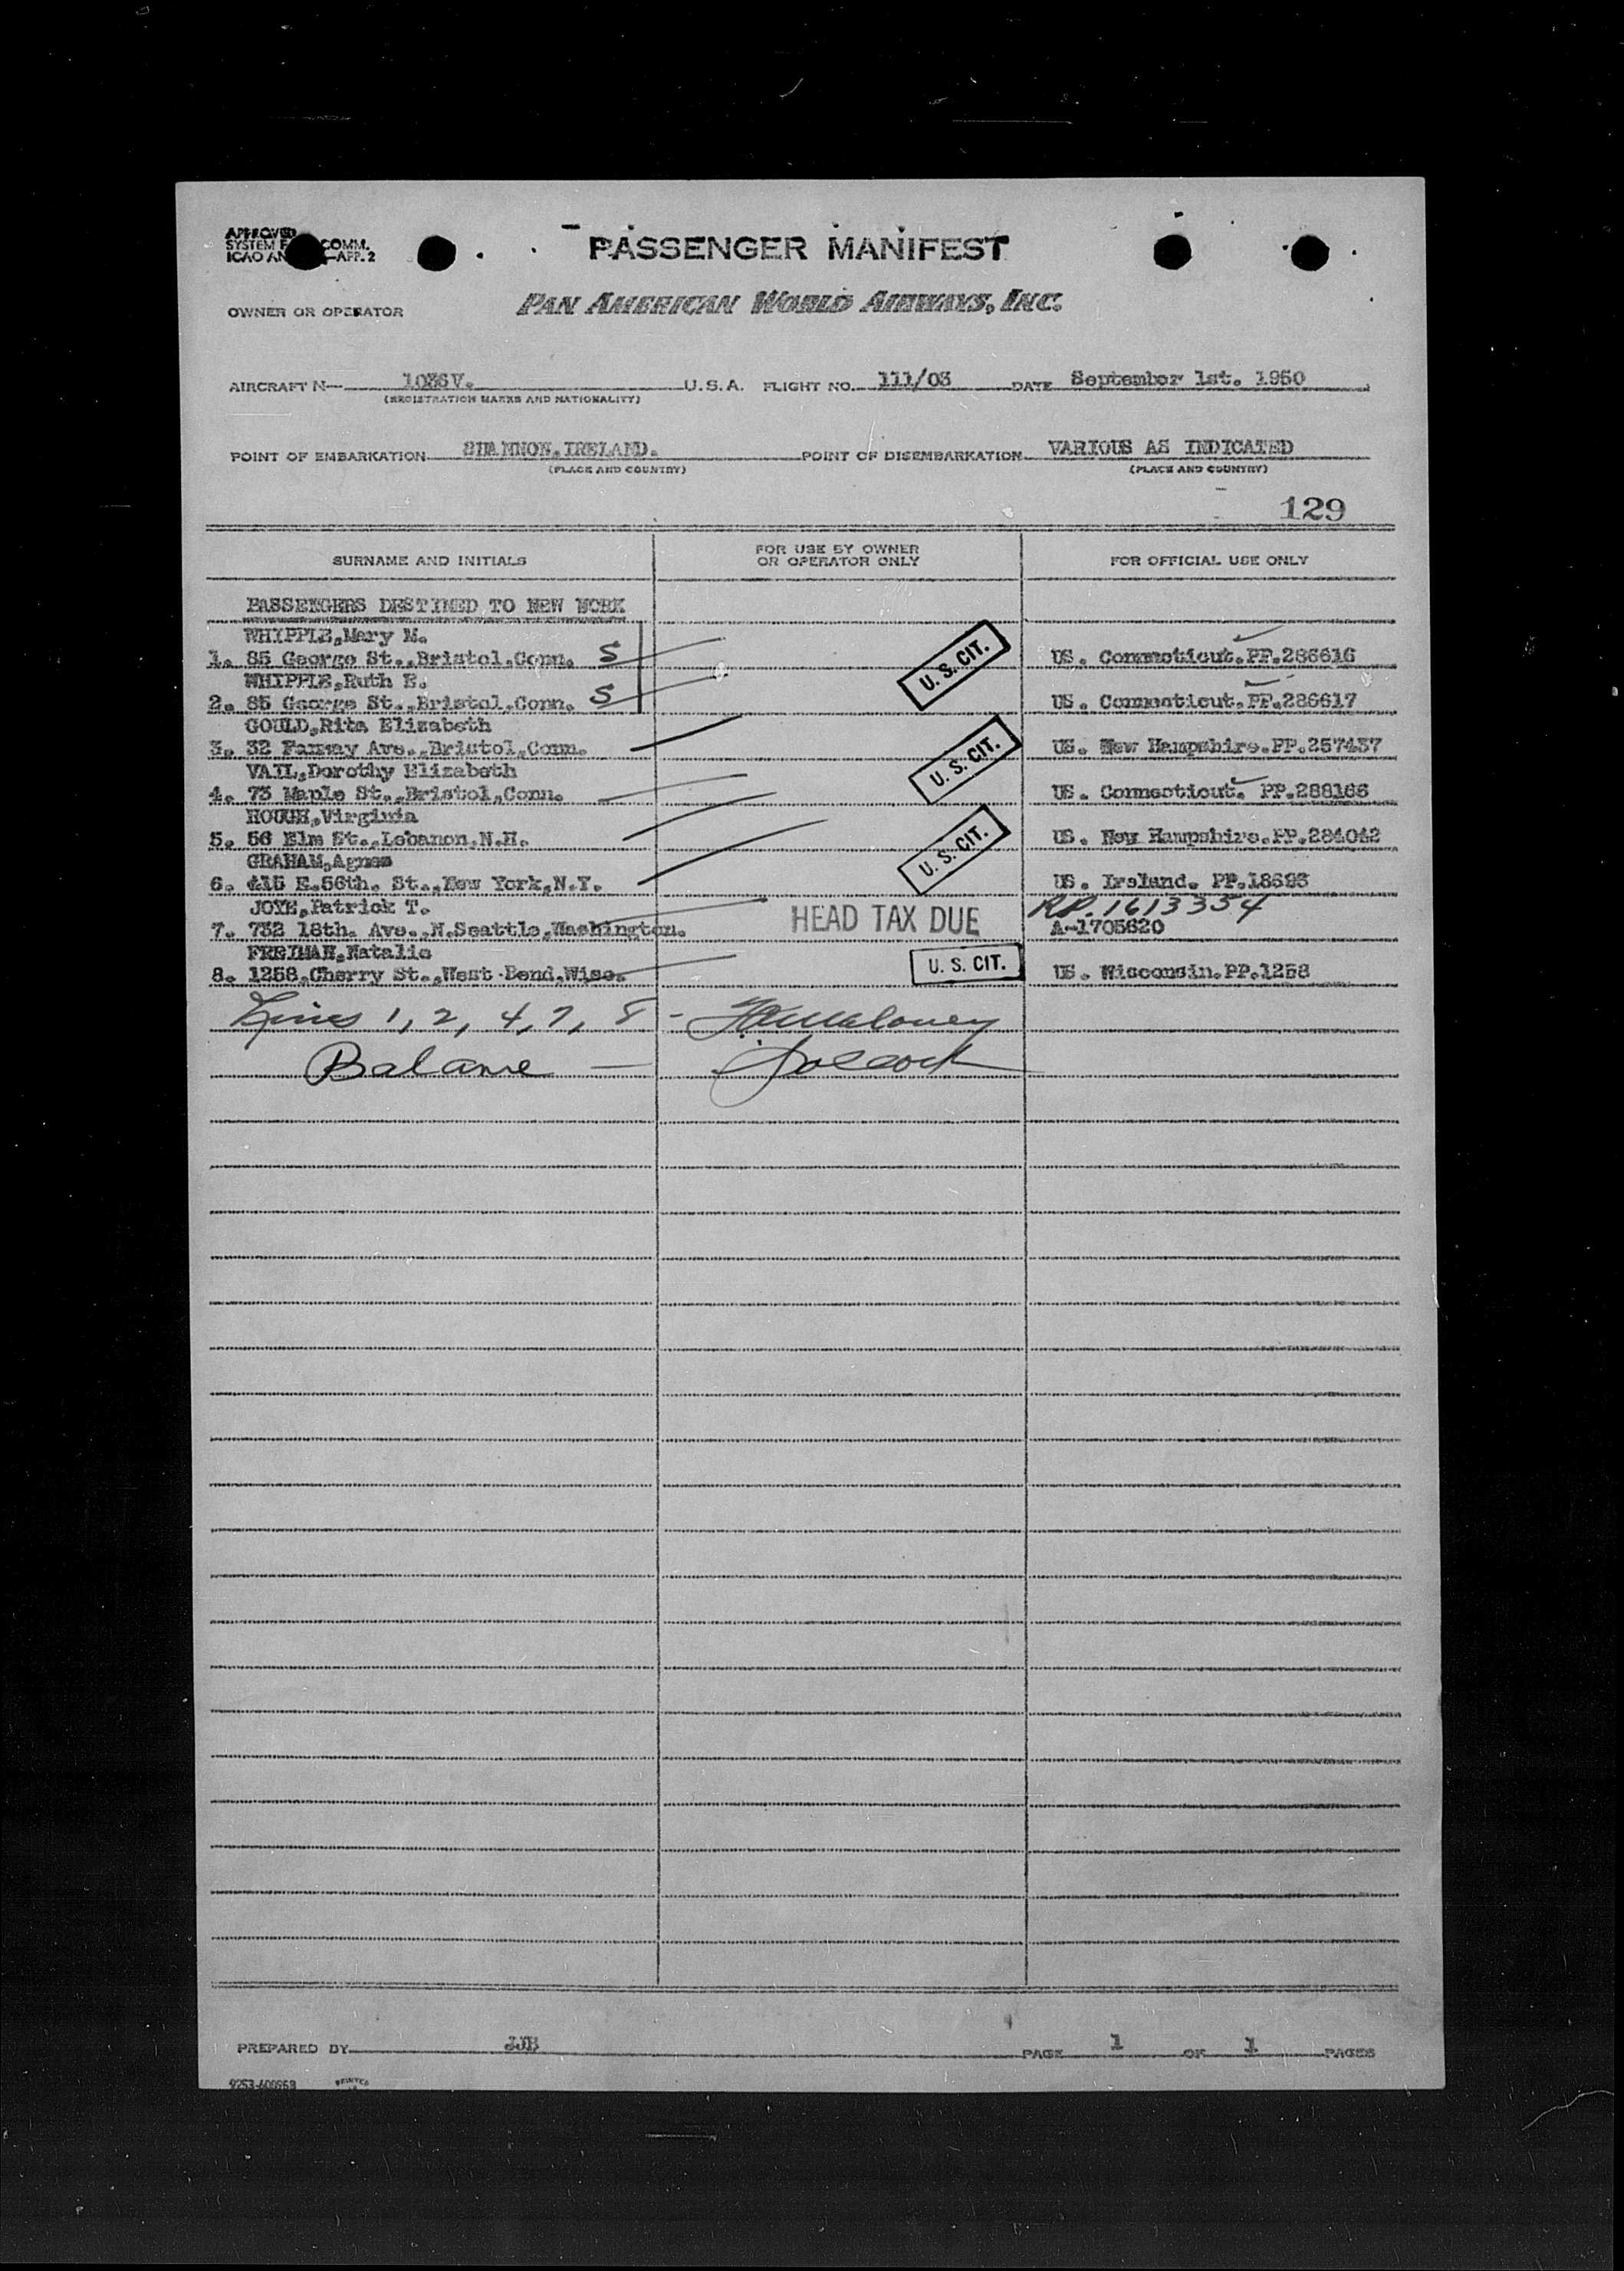 APPROVED
SYSTEM F COMM.
ICAO AN APP. 2
PASSENGER MANIFEST
OWNER OR OPERATOR PAN AMERICAN WORLD AIRWAYS, INC.
AIRCRAFT N— 1036V. U.S.A. FLIGHT NO. 111/03 DATE September 1st. 1950
(REGISTRATION MARKS AND NATIONALITY)
POINT OF EMBARKATION SHANNON, IRELAND. POINT OF DISEMBARKATION VARIOUS AS INDICATED
(PLACE AND COUNTRY) (PLACE AND COUNTRY)
129
SURNAME AND INITIALS FOR USE BY OWNER OR OPERATOR ONLY FOR OFFICIAL USE ONLY
PASSENGERS DESTINED TO NEW YORK
WHIPPLE,Mary M.
1. 85 George St.,Bristol,Conn. S U. S. CIT. US. Connecticut.PP.286616
WHIPPLE,Ruth E.
2. 85 George St.,Bristol,Conn. S US. Connecticut.PP.286617
GOULD,Rita Elizabeth
3. 32 Ave.,Bristol,Conn. U. S. CIT. US. New Hampshire.PP.257437
VAIL,Dorothy Elizabeth
4. 73 Maple St.,Bristol,Conn. US. Connecticut. PP.288166
Virginia
5. 56 Elm St.,Lebanon,N.H. U. S. CIT. US. New Hampshire.PP.284042
GRAHAM,Agnes
6. 415 E.56th. St.,New York,N.Y. US. Ireland. PP.18693
JOYE,Patrick T. RP. 1613354
7. 732 18th. Ave.,N.Seattle,Washington. HEAD TAX DUE A-1705620
FREIMAN,Natalie
8. 1258,Cherry St.,West Bend,Wisc. U. S. CIT. US. Wisconsin.PP.1258
Lines 1, 2, 4, 7, 8 - Maloney
Balance —
PREPARED BY JJB PAGE 1 OF 1 PAGES
PRINTED